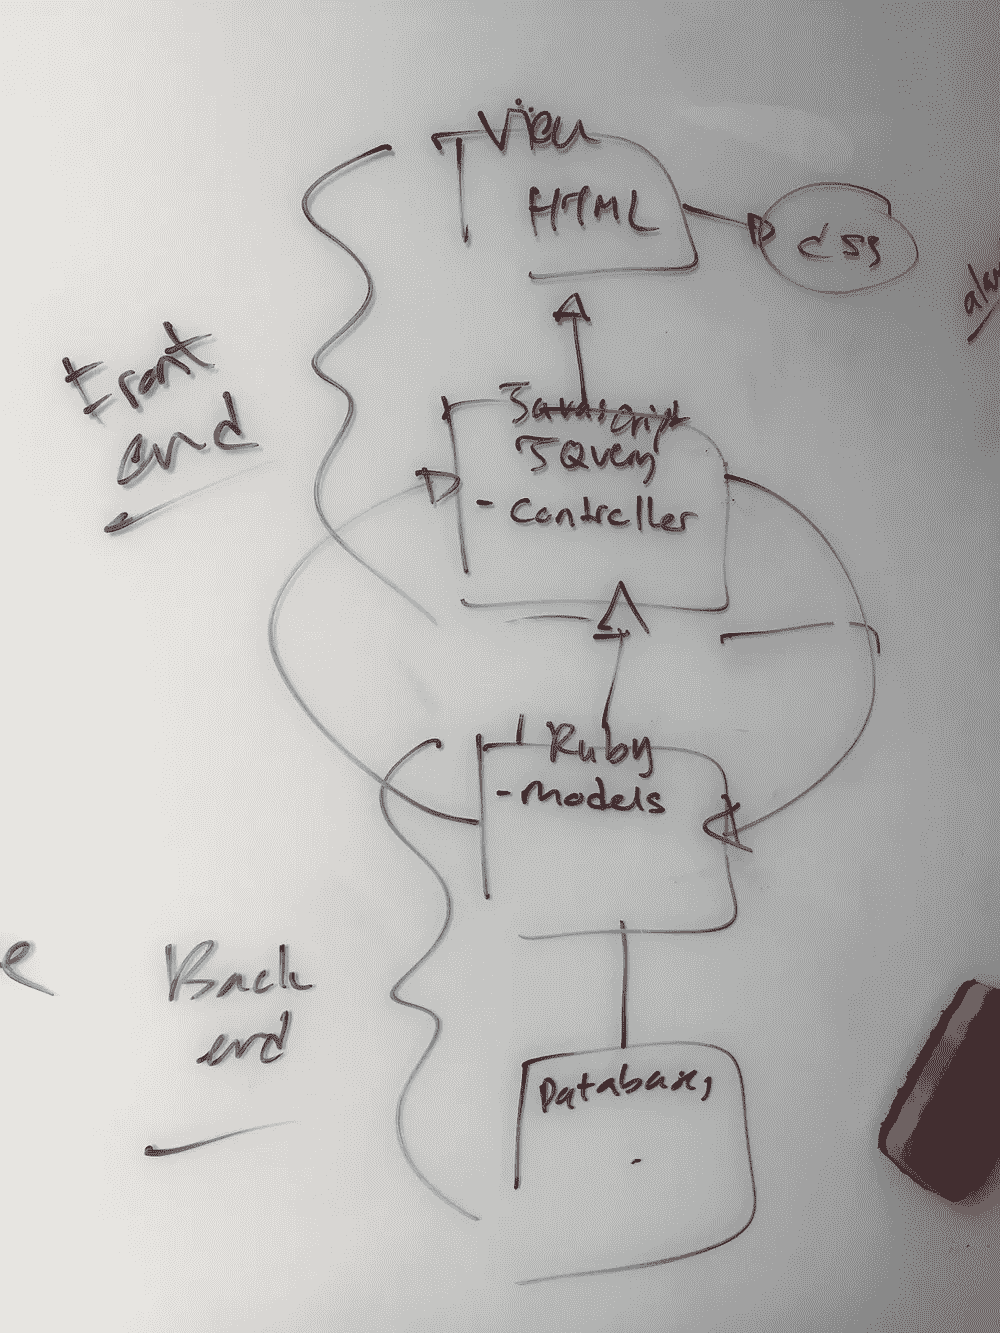 View
HTML
css
Front
end
Javascript
JQuery
- Controller
Ruby
- Models
Back
end
Databases